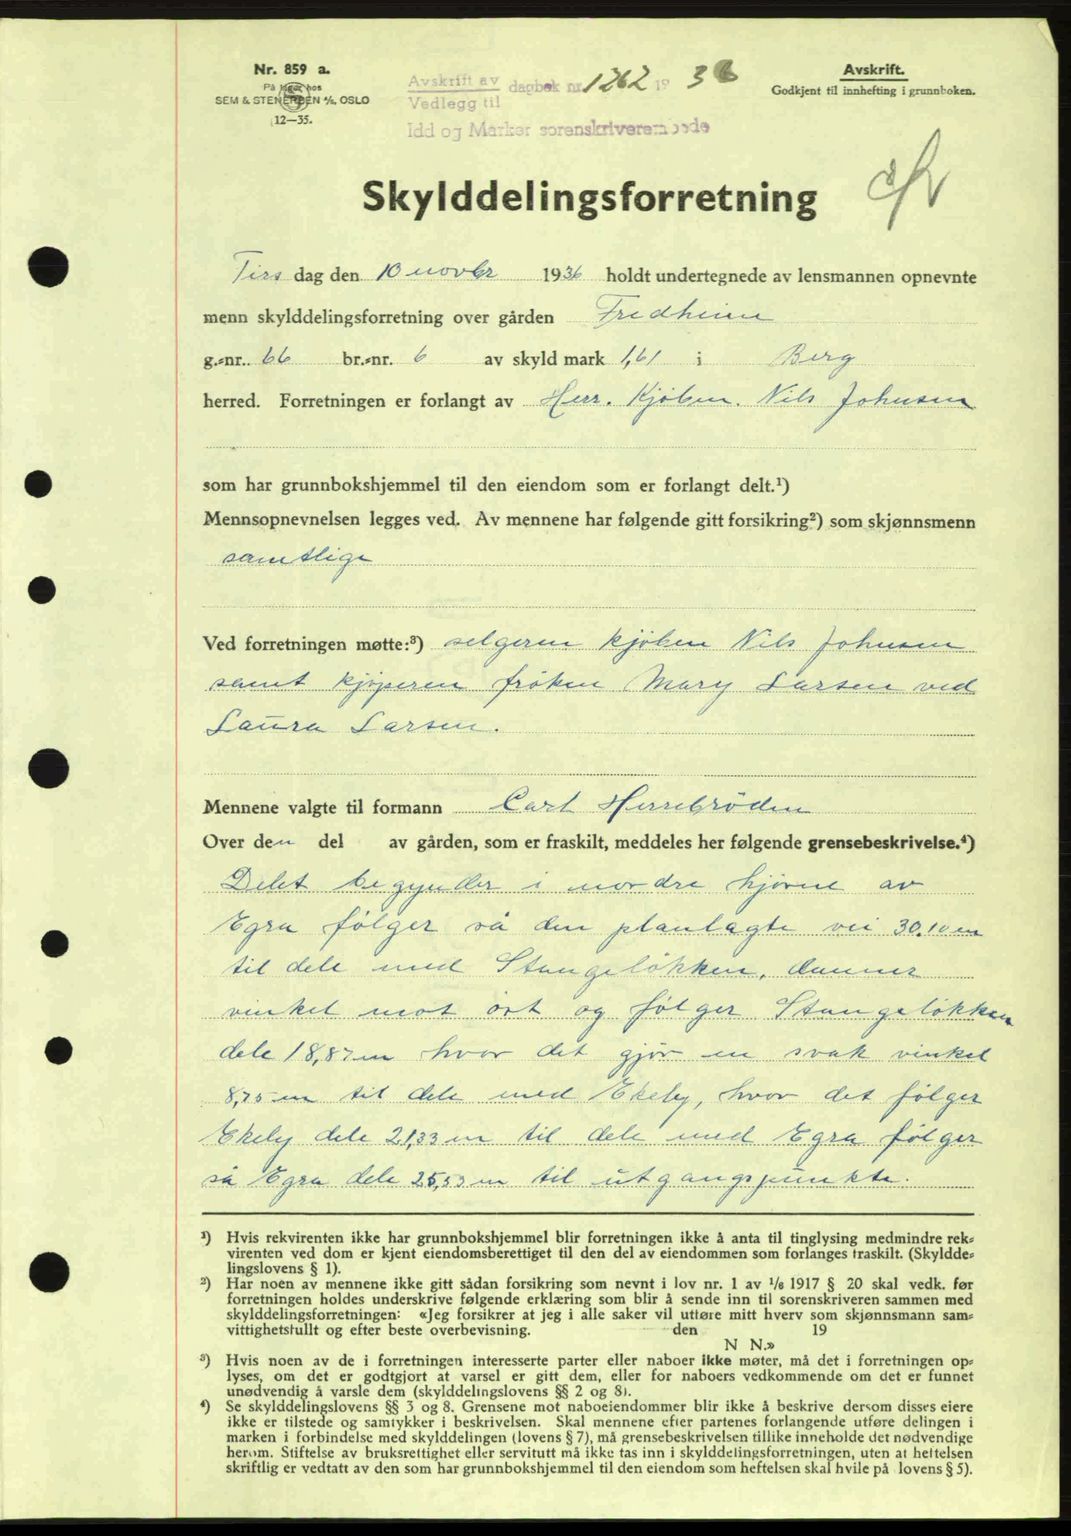 Nr. 859 a.
På lager hos
SEM & STENERSEN A/S, OSLO
12—35.
Avskrift av
Vedlegg til
dagbok nr. 1262 1936
Idd og Marker sorenskriverembede
Avskrift.
Godkjent til innhefting i grunnboken.
Skylddelingsforretning
Tirsdag den 10 novbr 1936 holdt undertegnede av lensmannen opnevnte
menn skylddelingsforretning over gården Fredheim
g.-nr. 66 br.-nr. 6 av skyld mark 1,61 i Berg
herred. Forretningen er forlangt av Herr. Kjøbm. Nils Johnsen
som har grunnbokshjemmel til den eiendom som er forlangt delt.¹)
Mennsopnevnelsen legges ved. Av mennene har følgende gitt forsikring²) som skjønnsmenn
samtlige
Ved forretningen møtte:³) selgeren kjøbm Nils Johnsen
samt kjøperen frøken Mary Larsen ved
Laura Larsen.
Mennene valgte til formann Carl Herrebrøden
Over den del av gården, som er fraskilt, meddeles her følgende grensebeskrivelse.⁴)
Delet begynder i nordre hjørne av
Egra følger så den planlagte vei 30.10 m
til dele med Stangeløkken, danner
vinkel mot øst og følger Stangeløkken
dele 18,87 m hvor det gjør en svak vinkel
8,75 m til dele med Ekely, hvor det følger
Ekely dele 21,33 m til dele med Egra følger
så Egra dele 25,53 m til utgangspunkte.
¹) Hvis rekvirenten ikke har grunnbokshjemmel blir forretningen ikke å anta til tinglysing medmindre rek-
virenten ved dom er kjent eiendomsberettiget til den del av eiendommen som forlanges fraskilt. (Skyldde-
lingslovens § 1).
²) Har noen av mennene ikke gitt sådan forsikring som nevnt i lov nr. 1 av 1/6 1917 § 20 skal vedk. før
forretningen holdes underskrive følgende erklæring som blir å sende inn til sorenskriveren sammen med
skylddelingsforretningen: «Jeg forsikrer at jeg i alle saker vil utføre mitt hverv som skjønnsmann sam-
vittighetsfullt og efter beste overbevisning. den 19
N N.»
³) Hvis noen av de i forretningen interesserte parter eller naboer ikke møter, må det i forretningen op-
lyses, om det er godtgjort at varsel er gitt dem, eller for naboers vedkommende om det er funnet
unødvendig å varsle dem (skylddelingslovens §§ 2 og 8).
⁴) Se skylddelingslovens §§ 3 og 8. Grensene mot naboeiendommer blir ikke å beskrive dersom disses eiere
ikke er tilstede og samtykker i beskrivelsen. Skal mennene efter partenes forlangende utføre delingen i
marken i forbindelse med skylddelingen (lovens § 7), må grensebeskrivelsen tillike inneholde det nødvendige
herom. Stiftelse av bruksrettighet eller servitutt må ikke tas inn i skylddelingsforretningen, uten at heftelsen
skriftlig er vedtatt av den som har grunnbokshjemmel til den eiendom som heftelsen skal hvile på lovens § 5).